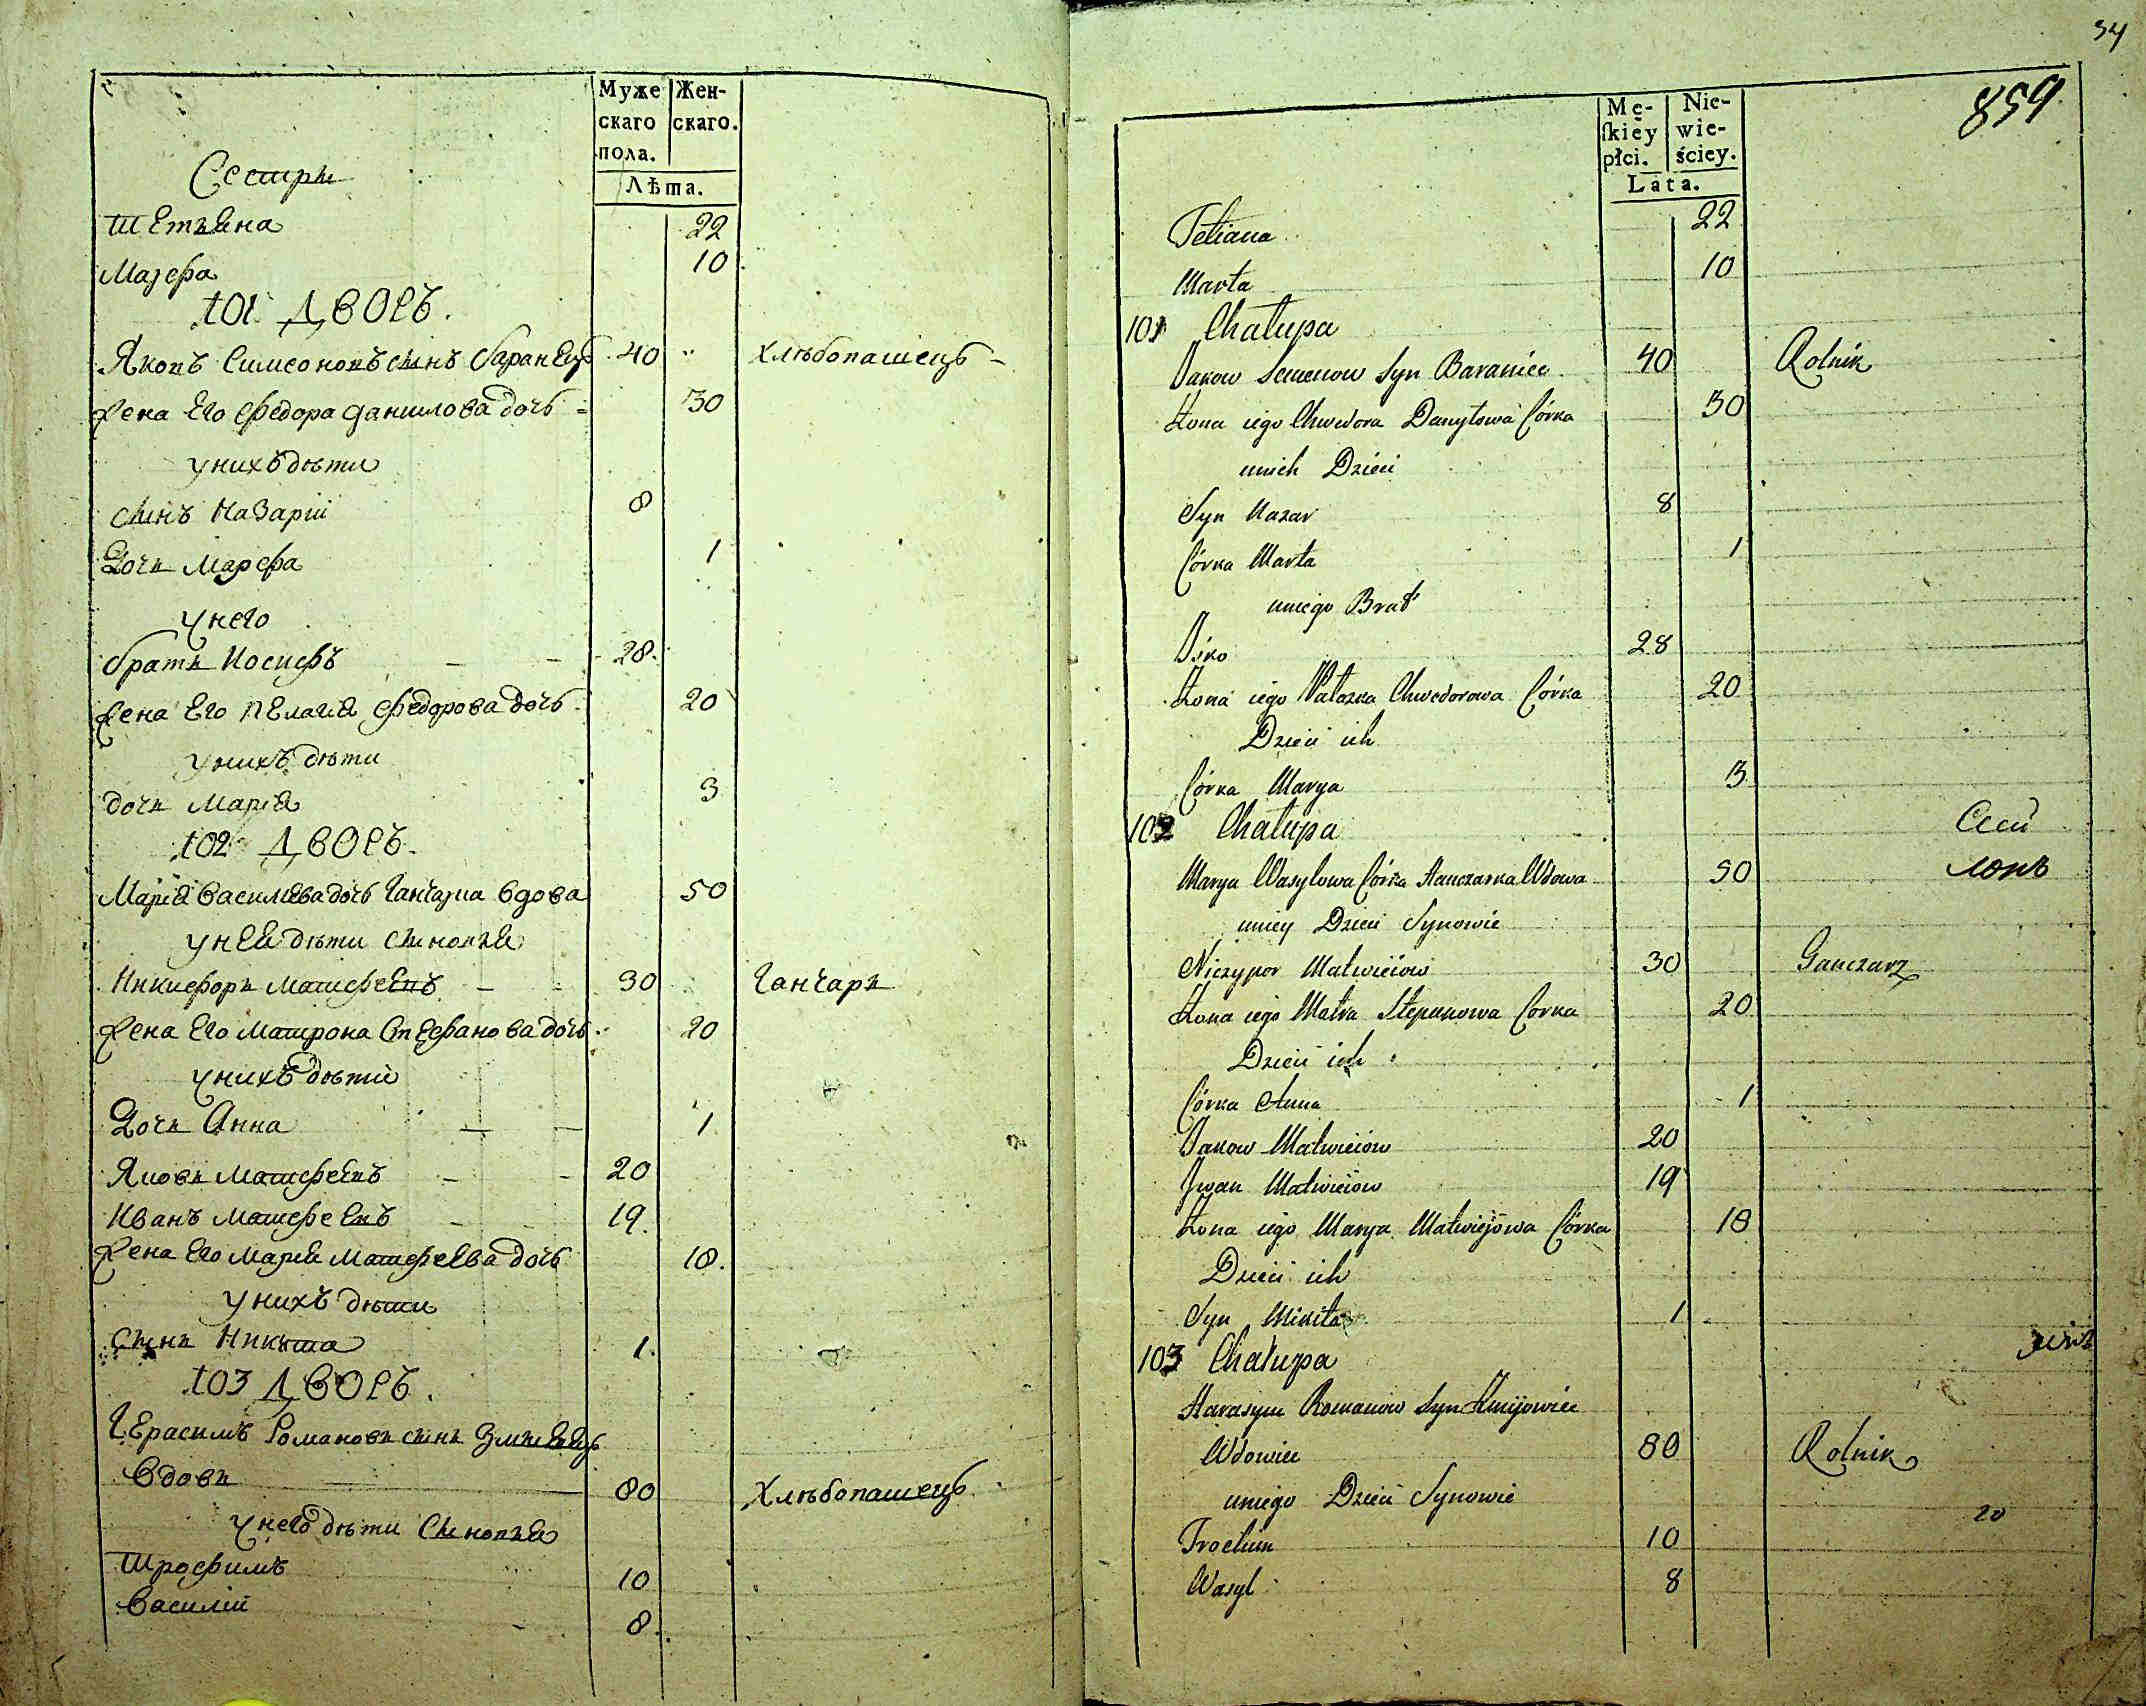 Муже
скаго
пола.
Жен-
скаго.
Лѣта.
Сестры
Тетьяна 22
Марфа 10
101 Дворъ.
Яковъ Симеоновъ сынъ Баранецъ 40 хлѣбопашецъ
Жена его Федора Данилова дочь 30
у нихъ дѣти
сынъ Назарій 8
Дочь Марфа 1
у него
братъ Иосифъ 28.
Жена его Пелагія Федорова дочь 20
у нихъ дѣти
дочь Марія 3
102 Дворъ.
Марія Василіева дочь Ганчарка вдова 50
у нея дѣти сыновья
Никифоръ Матфеевъ 30 Ганчаръ
Жена его Матрона Стефанова дочь 20
у нихъ дѣти
Дочь Анна 1
Яковъ Матфеевъ 20
Иванъ Матфеевъ 19.
Жена его Марія Матфеева дочь 18.
у нихъ дѣти
Сынъ Никита 1.
103 Дворъ.
Герасимъ Романовъ сынъ Змѣевецъ
вдовъ 80 Хлѣбопашецъ
у него дѣти сыновья
Трофимъ 10
Василій 8.
34
859
Mę-
ſkiey
płci.
Nie-
wie-
ściey.
Lata.
Tetiana 22
Marta 10
101 Chałupa
Jakow Semenow Syn Baraniec 40 Rolnik
Żona iego Chwedora Danyłowa Córka 30
unich Dzieci
Syn Nazar 8
Córka Marta 1
uniego Brat
Jśko 28
Żona iego Pałazka Chwedorowa Córka 20
Dzieci ich
Córka Marya 3
102 Chałupa
Marya Wasylowa Córka Hanczarka Wdowa 50
uniey Dzieci Synowie
Niczypor Matwieiów 30 Ganczarz
Żona iego Matra Stepanowa Corka 20
Dzieci ich
Córka Anna 1
Jakow Matwieiów 20
Jwan Matwieiow 19
Żona iego Marya Matwiejowa Córka 18
Dzieci ich
Syn Mikita 1
103 Chałupa
Harasym Romanow Syn Zmijowiec
Wdowiec 80 Rolnik
uniego Dzieci Synowie
20
Trochim 10
Wasyl 8